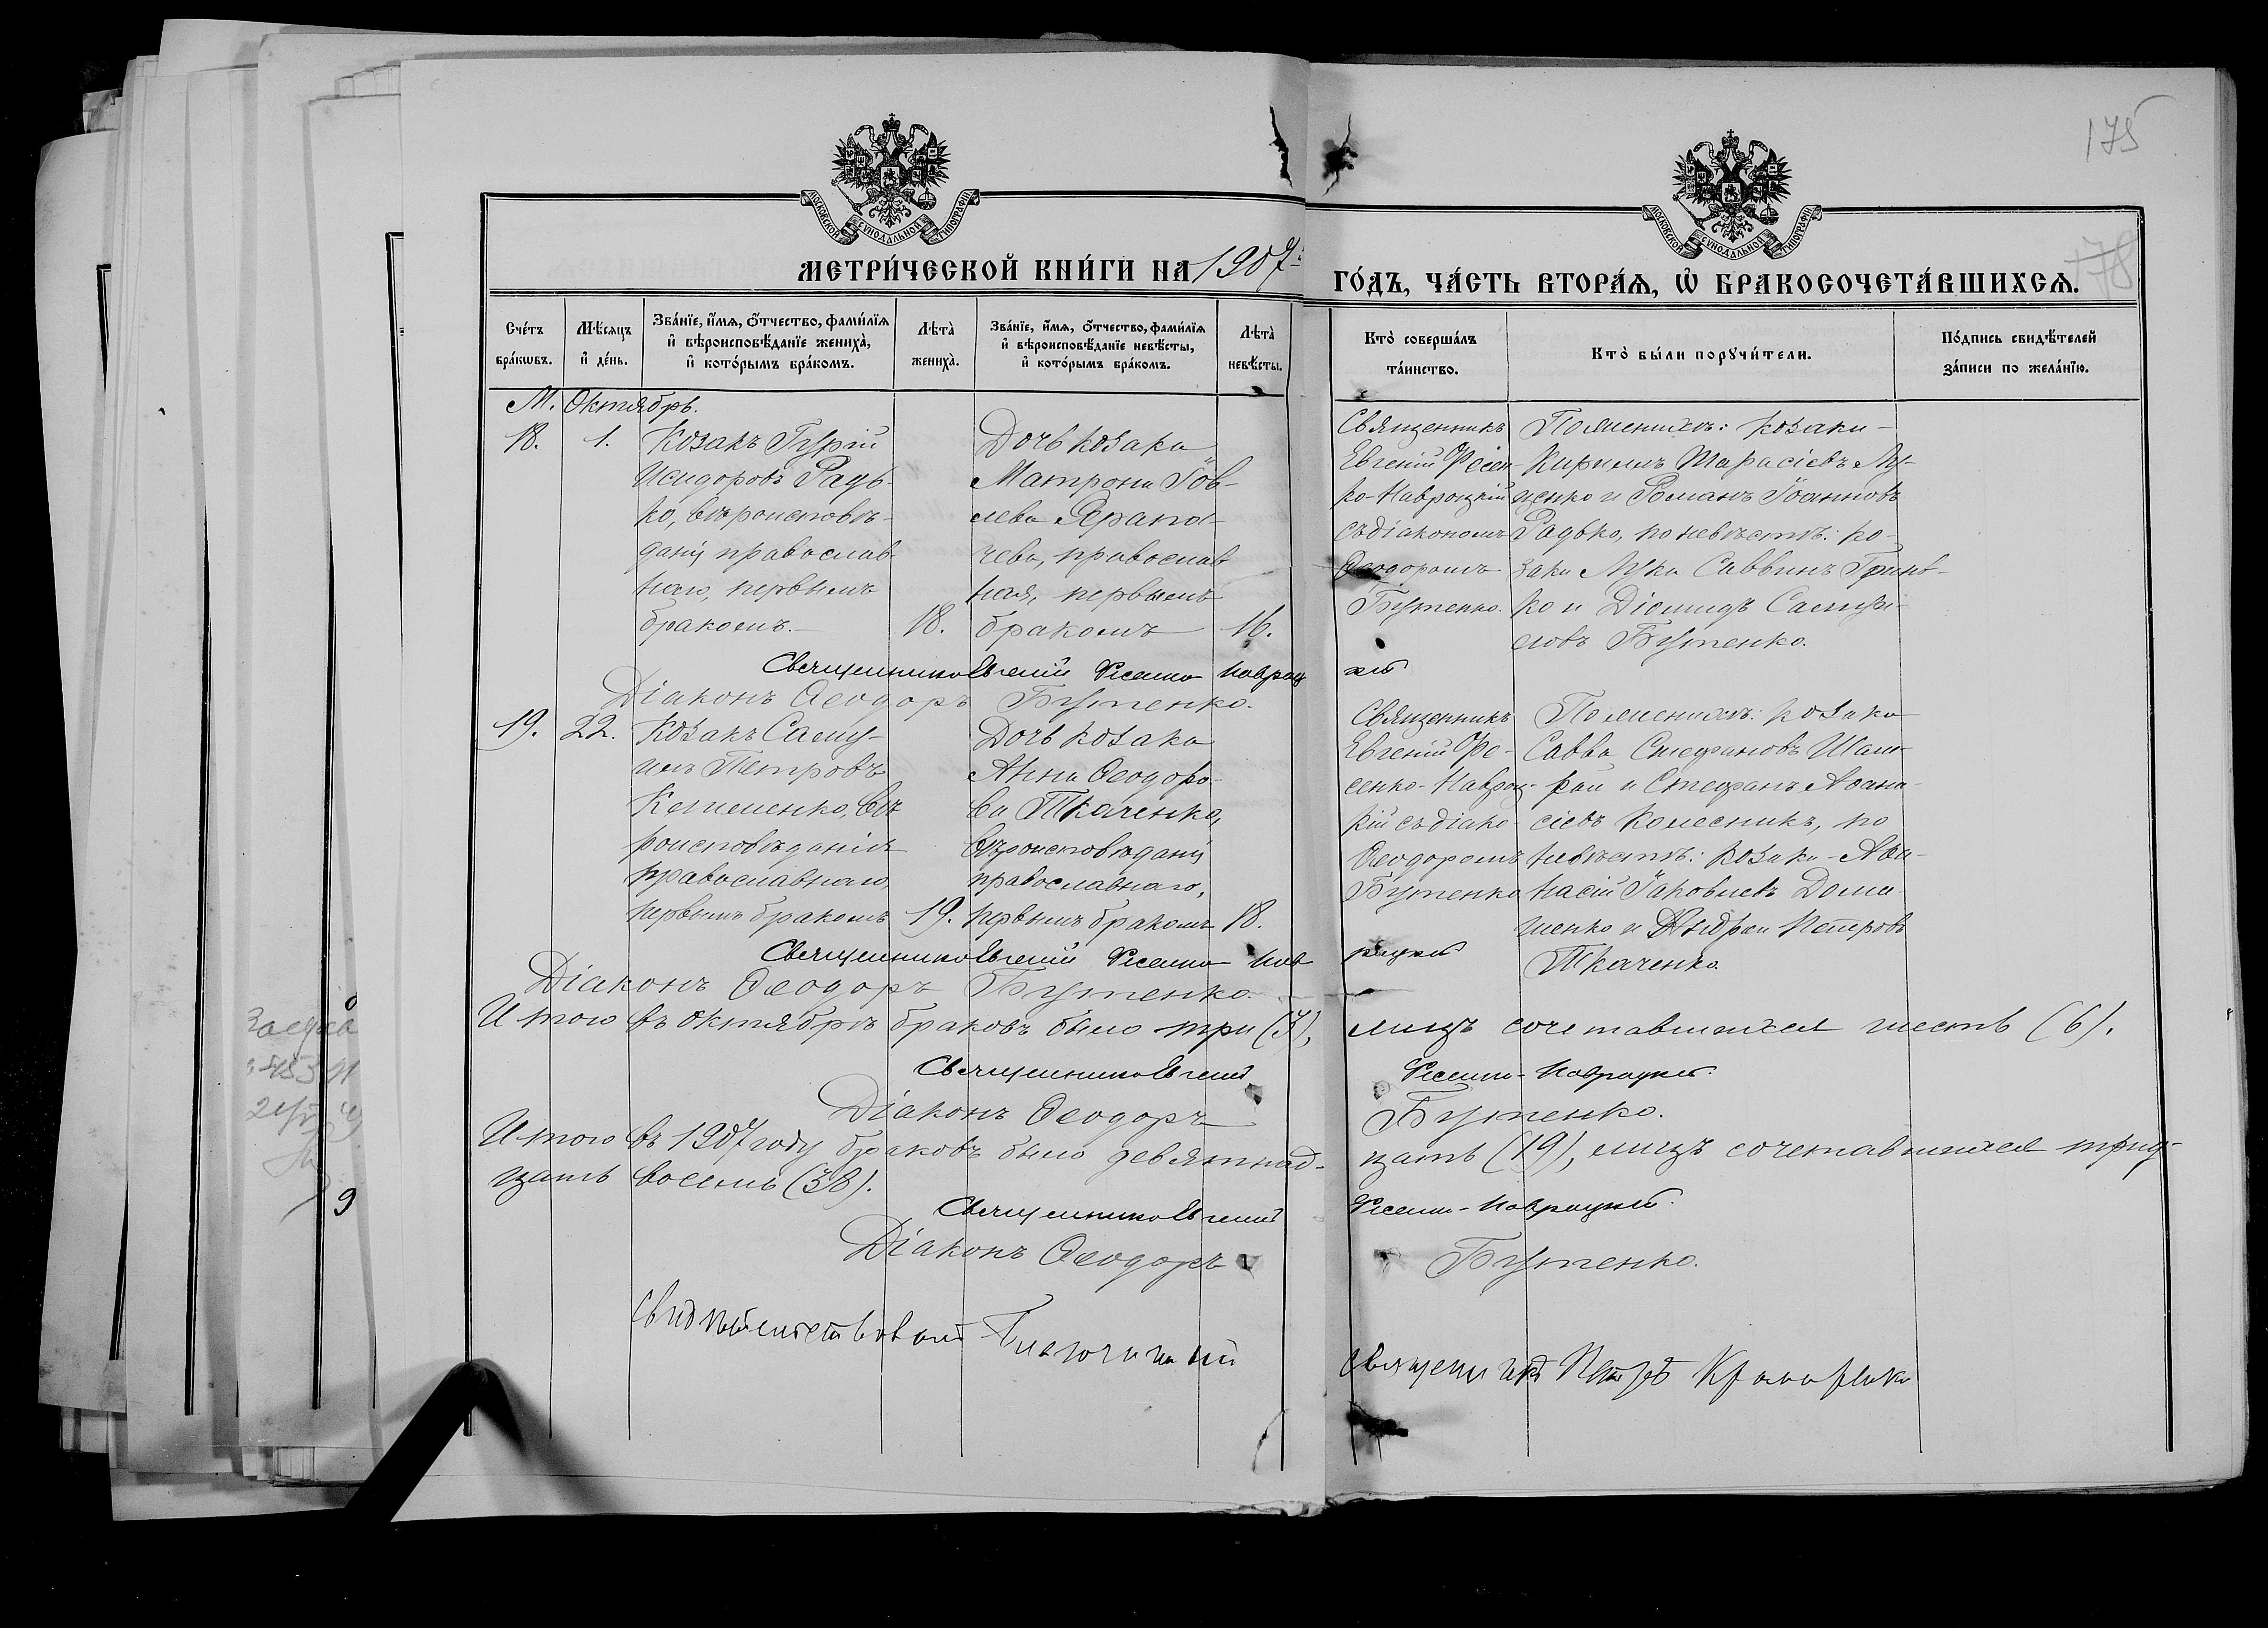 175
178
МОСКОВСКОЙ СѴНОДАЛЬНОЙ ТИПОГРАФІИ
МОСКОВСКОЙ СѴНОДАЛЬНОЙ ТИПОГРАФІИ
МЕТРИ́ЧЕСКОЙ КНИ́ГИ НА 1907й
ГО́ДЪ, ЧА́СТЬ ВТОРА́Ѧ, Ѡ҆ БРАКОСОЧЕТА́ВШИХСѦ.
Сче́тъ бра́кωвъ.
Мѣ́сяцъ и҆ де́нь.
Зва́нїе, и҆́мѧ, ѻ҆́тчество, фами́лїѧ и҆ вѣроисповѣ́данїе жениха̀, и҆ кото́рымъ бра́комъ.
Лѣта̀ жениха̀.
Зва́нїе, и҆́мѧ, ѻ҆́тчество, фами́лїѧ и҆ вѣроисповѣ́данїе невѣ́сты, и҆ кото́рымъ бра́комъ.
Лѣта̀ невѣ́сты.
Кто̀ соверша́лъ та́инство.
Кто̀ бы́ли порꙋчи́тели.
По́дпись свидѣ́телей за́писи по жела́нїю.
М. Октябрь.
18.
1.
Козакъ Гурій
Исидоровъ Радь-
ко, вѣроисповѣ-
данія православ
наго, первымъ
бракомъ.
18.
Дочь козака
Матрона Іов-
лева
чева, православ
ная, первымъ
бракомъ
16.
Священникъ
Евгеній Фесен-
ко-Навроцкій
съ діакономъ
Ѳеодоромъ
Бутенко.
По женихѣ: козаки-
Кириллъ Тарасіевъ Лу-
ценко и Романъ Іоанновъ
Радько, по невѣстѣ: ко-
заки Лука Саввинъ Гринь-
ко и Діомидъ Самуи-
ловъ Бутенко.
Священникъ Евгеній Фесенко Навроц
кій
Діаконъ Ѳеодоръ Бутенко.
19.
22.
Козакъ Саму-
илъ Петровъ
вѣ
роисповѣданія
православнаго,
первымъ бракомъ
19.
Дочь козака
Анна Ѳеодоро-
ва Ткаченко,
вѣроисповѣданія
православнаго,
первымъ бракомъ
18.
Священникъ
Евгеній Фе-
сенко-Навроц-
кій съ діако-
Ѳеодоромъ
Бутенко
По женихѣ: козаки
Савва Стефановъ Шам-
рай и Стефанъ Аѳана-
сіевъ Колесникъ, по
невѣстѣ: козаки-Аѳа-
насій Іаковлевъ Дома-
шенко и Андрей Петровъ
Ткаченко.
Священникъ Евгеній Фесенко Нав
роцкій
Діаконъ Ѳеодоръ Бутенко.
Итого въ октябрѣ браковъ было три (3), лицъ сочетавшихся шесть (6).
Священникъ Евгеній Фесенко-Навроцкій.
Діаконъ Ѳеодоръ Бутенко.
Итого въ 1907 году браковъ было девятнад-
цать (19), лицъ сочетавшихся трид-
цать восемь (38).
Священникъ Евгеній Фесенко-Навроцкій.
Діаконъ Ѳеодоръ Бутенко.
Свидѣтельствовалъ Благочинный
Священникъ Петръ
9